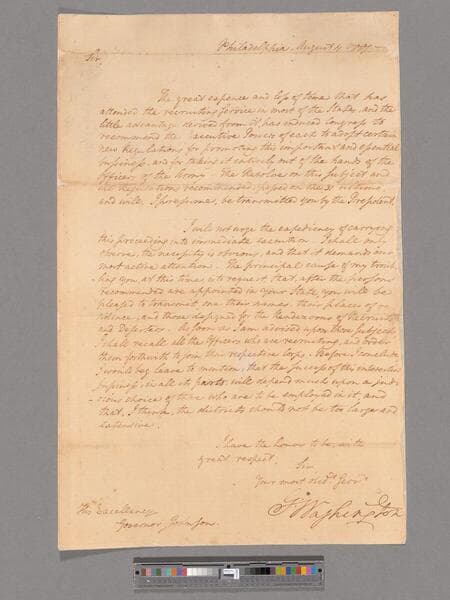 Philadelphia August 4 1777
Sir,
The great expence and loss of time that has
attended the recruiting service in most of the States, and the
little advantage derived from it, has induced Congress to
recommend the Executive Powers of each to adopt certain
new Regulations for promoting this important and essential
business, and for taking it entirely out of the hands of the
Officers of the Army. The Resolves on this subject and
the Regulations recommended, passed on the 31 Ultimo
and will, I presume, be transmitted you by the President.
I will not urge the expediency of carrying
this proceeding into immediate execution. I shall only
observe, the necessity is obvious, and that it demands our
most active attention. The principal cause of my troub-
ling you at this time, is to request that after the persons
recommended are appointed in your State, you will be
pleased to transmit me their names, their places of re-
sidence, and those assigned for the Rendezvous of the recruits
and Deserters. As soon as I am advised upon these subjects
I shall recall all the Officers who are recruiting, and order
them forthwith to join their respective Corps. Before I conclude
I would beg leave to mention, that the success of this interesting
business, in all its parts, will depend much upon a judi-
cious choice of those who are to be employed in it, and
that, I think, the districts should not be too large and
extensive.
I have the honor to be, with
great respect
Sir
Your most Obedt Servt
Go Washington
His Excellency
Governor Johnson.